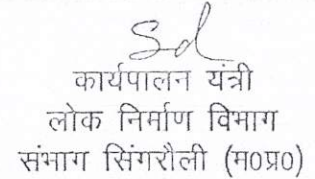 Sd
कार्यपालन यंत्री
लोक निर्माण विभाग
संभाग सिंगरौली (म0प्र0)